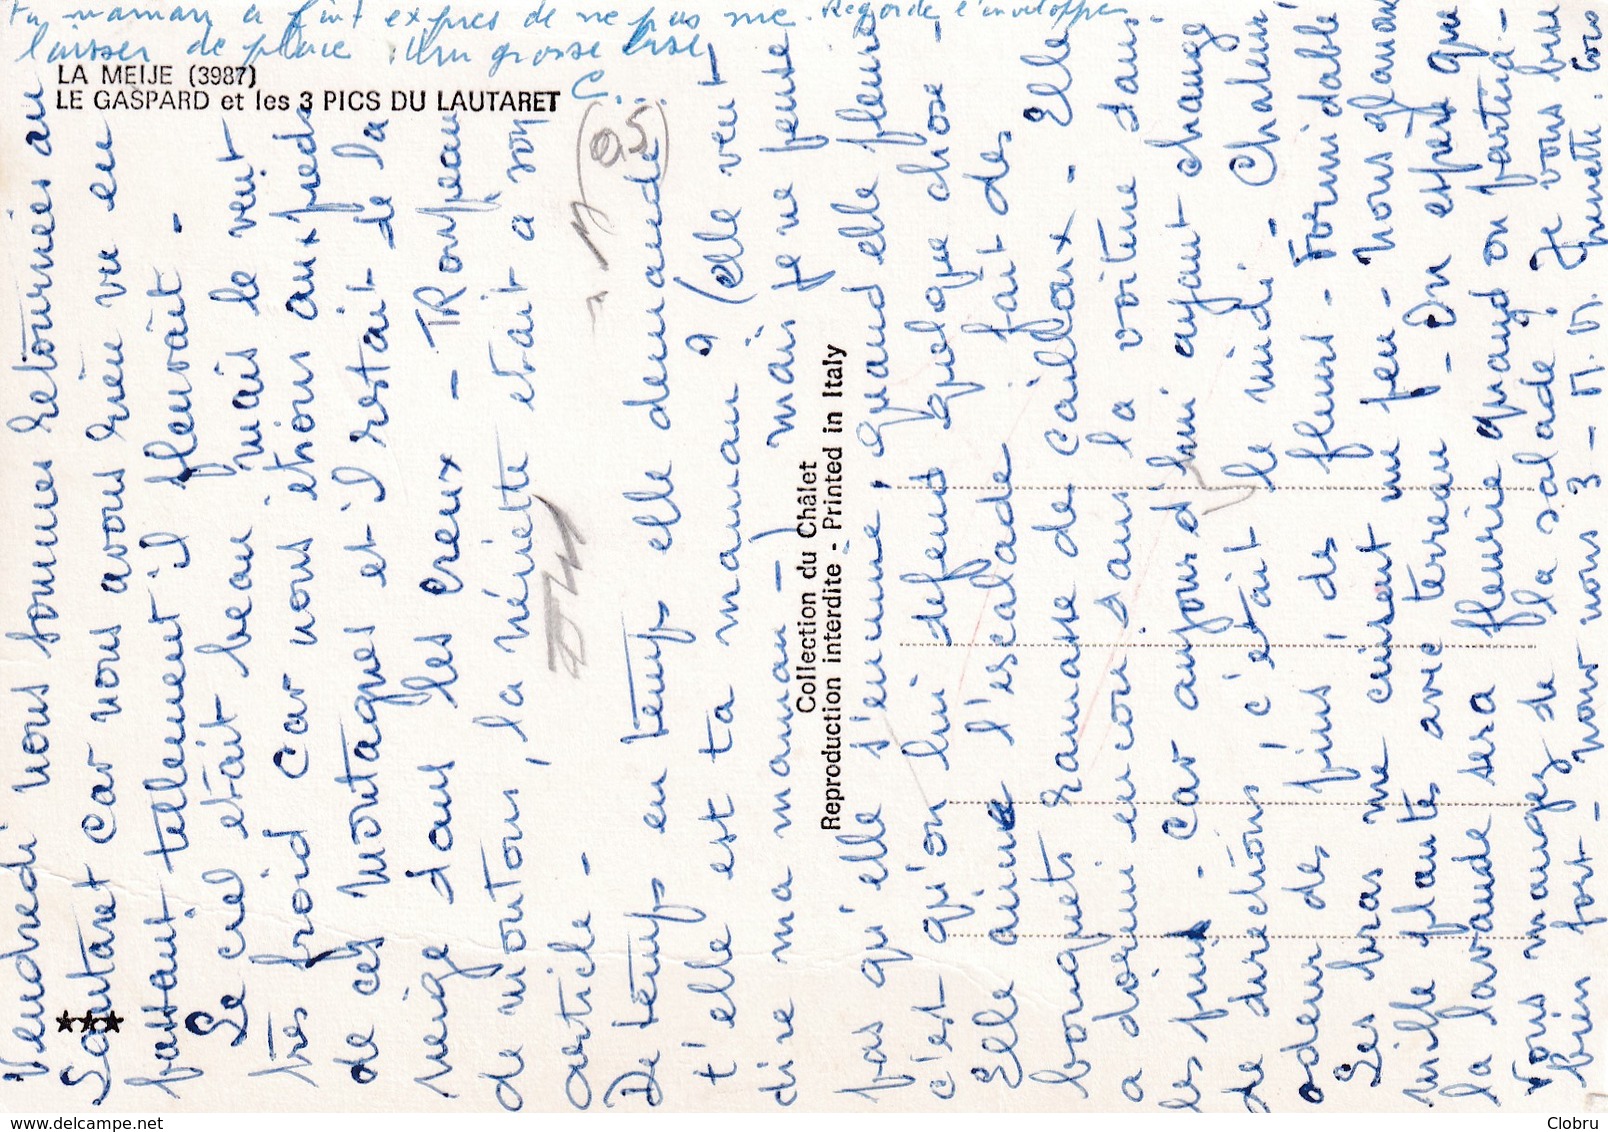 Ta maman a fait exprès de ne pas me
laisser de place. Une grosse bise
Regarde l'enveloppe.
C...
LA MEIJE (3987)
LE GASPARD et les 3 PICS DU LAUTARET
Vendredi nous sommes retournées au
Lautaret car nous avons rien vu en
passant tellement il pleuvait -
Le ciel était beau mais le vent
très froid car nous étions aux pieds
de ces montagnes et il restait de la
neige dans les creux - TRoupeau
de moutons, la
était a son
article -
De temps en temps elle demande
t'elle est ta maman ? (elle veut
dire ma maman -) mais je ne pense
pas qu'elle s'ennuie, quand elle pleure
c'est qu'on lui défend quelque chose -
Elle aime l'escalade fait des
bouquets ramasse de cailloux - Elle
a dormi encore dans la voiture dans
les pins - Car aujourd'hui ayant changé
de directions, c'était le midi - Chaleur
odeur des pins des fleurs - Formidable
Les bras me cuisent un peu - Nous glanons
mille plantes avec terreau - On espère que
la lavande sera fleurie quand on partira -
Vous mangez de la salade ? Je vous bise
bien fort - nous nous 3 -
Collection du Châlet
Reproduction interdite - Printed in Italy
95
★★★
Clobru
delcampe.net